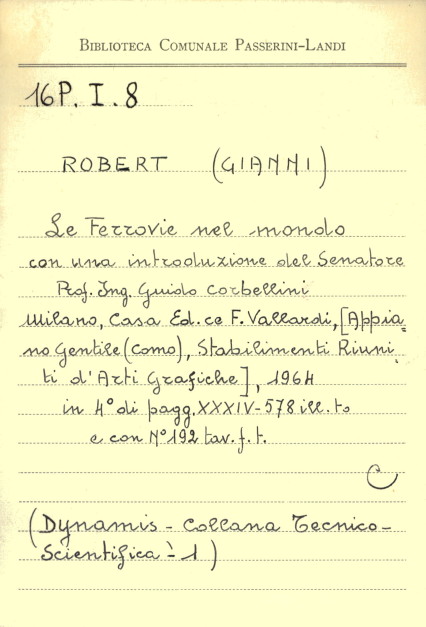 BIBLIOTECA COMUNALE PASSERINI-LANDI
16P. I. 8
ROBERT (GIANNI)
Le Ferrovie nel mondo
con una introduzione del Senatore
Prof. Ing. Guido Corbellini
Milano, Casa Ed.ce F. Vallardi, [Appia=
no Gentile (Como), Stabilimenti Riuni=
ti d'Arti Grafiche], 1964
in 4° di pagg. XXXIV-578 ill.to
e con N° 192 tav. f. t.
C
(Dynamis - Collana Tecnico-
Scientifica - 1)